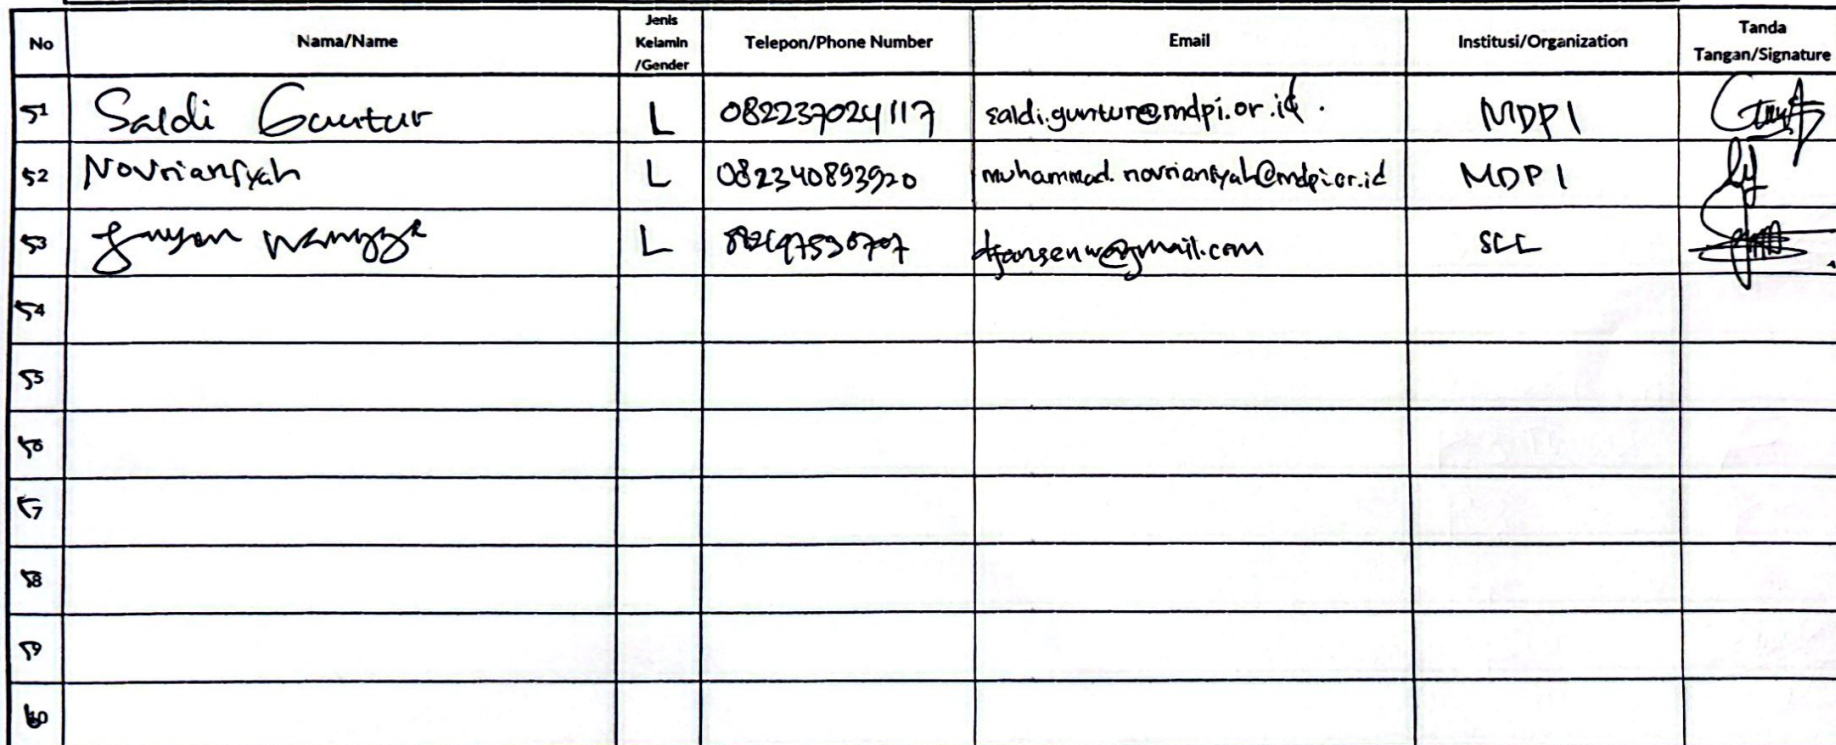 No Nama/Name Jenis Kelamin /Gender Telepon/Phone Number Email Institusi/Organization Tanda Tangan/Signature
51 Saldi Guntur L 082237024117 saldi.guntur@mdpi.or.id. MDPI
52 Novriansyah L 082340893920 muhammad.novriansyah@mdpi.or.id MDPI
53 L SCC
54
55
56
57
58
59
60